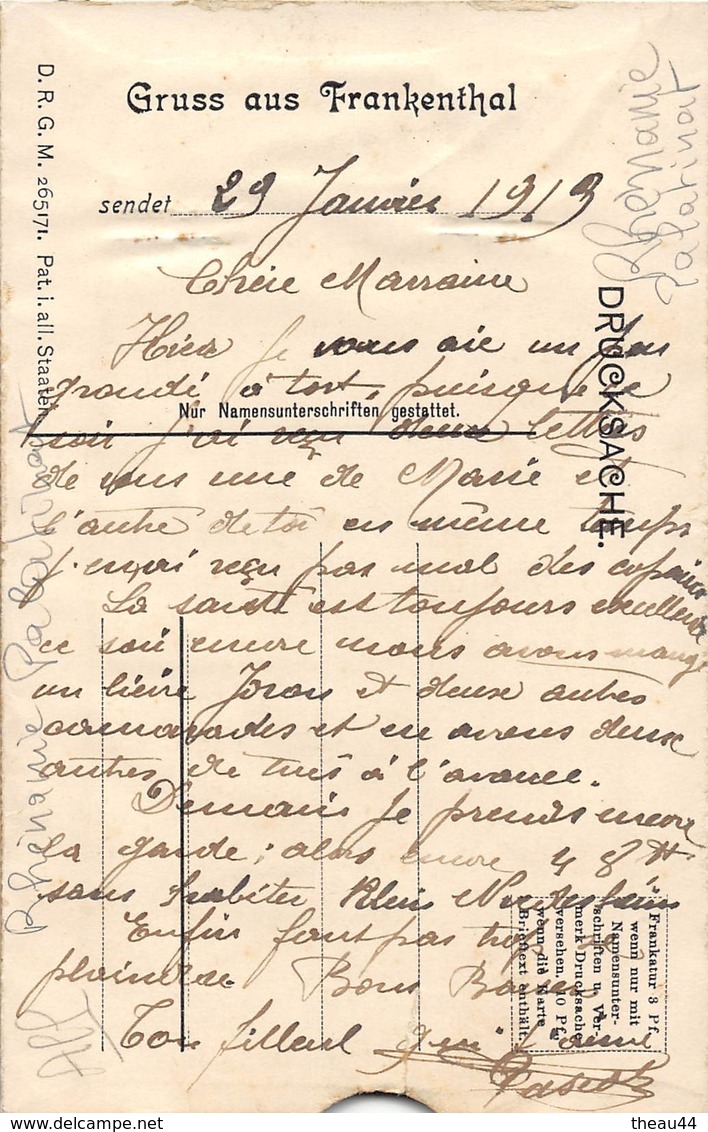 Gruss aus Frankenthal
sendet 29 Janvier 1913
Chère Marraine
Hier je vous aie un peu
grondé à tort, puisque ce
Nur Namensunterschriften gestattet.
soir j'ai reçu deux lettres
de vous une de Marie et
l'autre de toi en même temps
j'en ai reçu pas mal des copains
La santé est toujours excellente
ce soir encore nous avons mangé
un lièvre Joron et deux autres
camarades et en avons deux
autres de tués à l'avance.
Demain je prends encore
la garde; alors encore 48 H
sans habiter Klein
Enfin faut pas trop se
plaindre. Bons Baisers
Ton filleul qui t'aime
D. R. G. M. 265171. Pat. i. all. Staaten
DRUCKSACHE.
Frankatur 3 Pf.
wenn nur mit
Namensunter-
schriften u. Ver-
merk Drucksache
versehen, 10 Pf.
wenn die Karte
Brieftext enthält.
Palatinat
Rhénanie
Rhénanie Palatinat
theau44